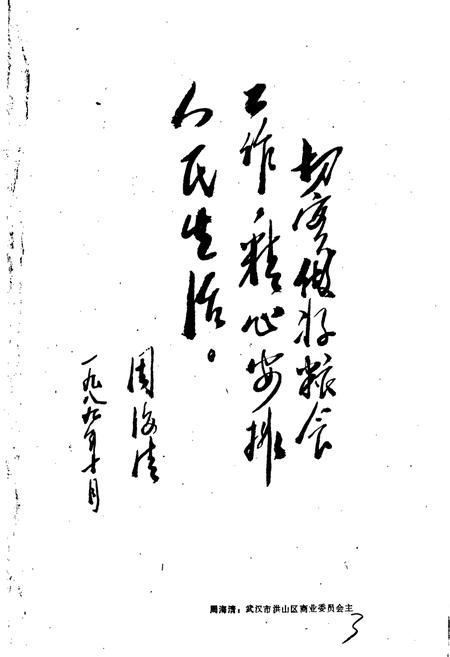 切实做好粮食
工作，精心安排
人民生活。
周海清
一九八九年十月
周海清：武汉市洪山区商业委员会主
3